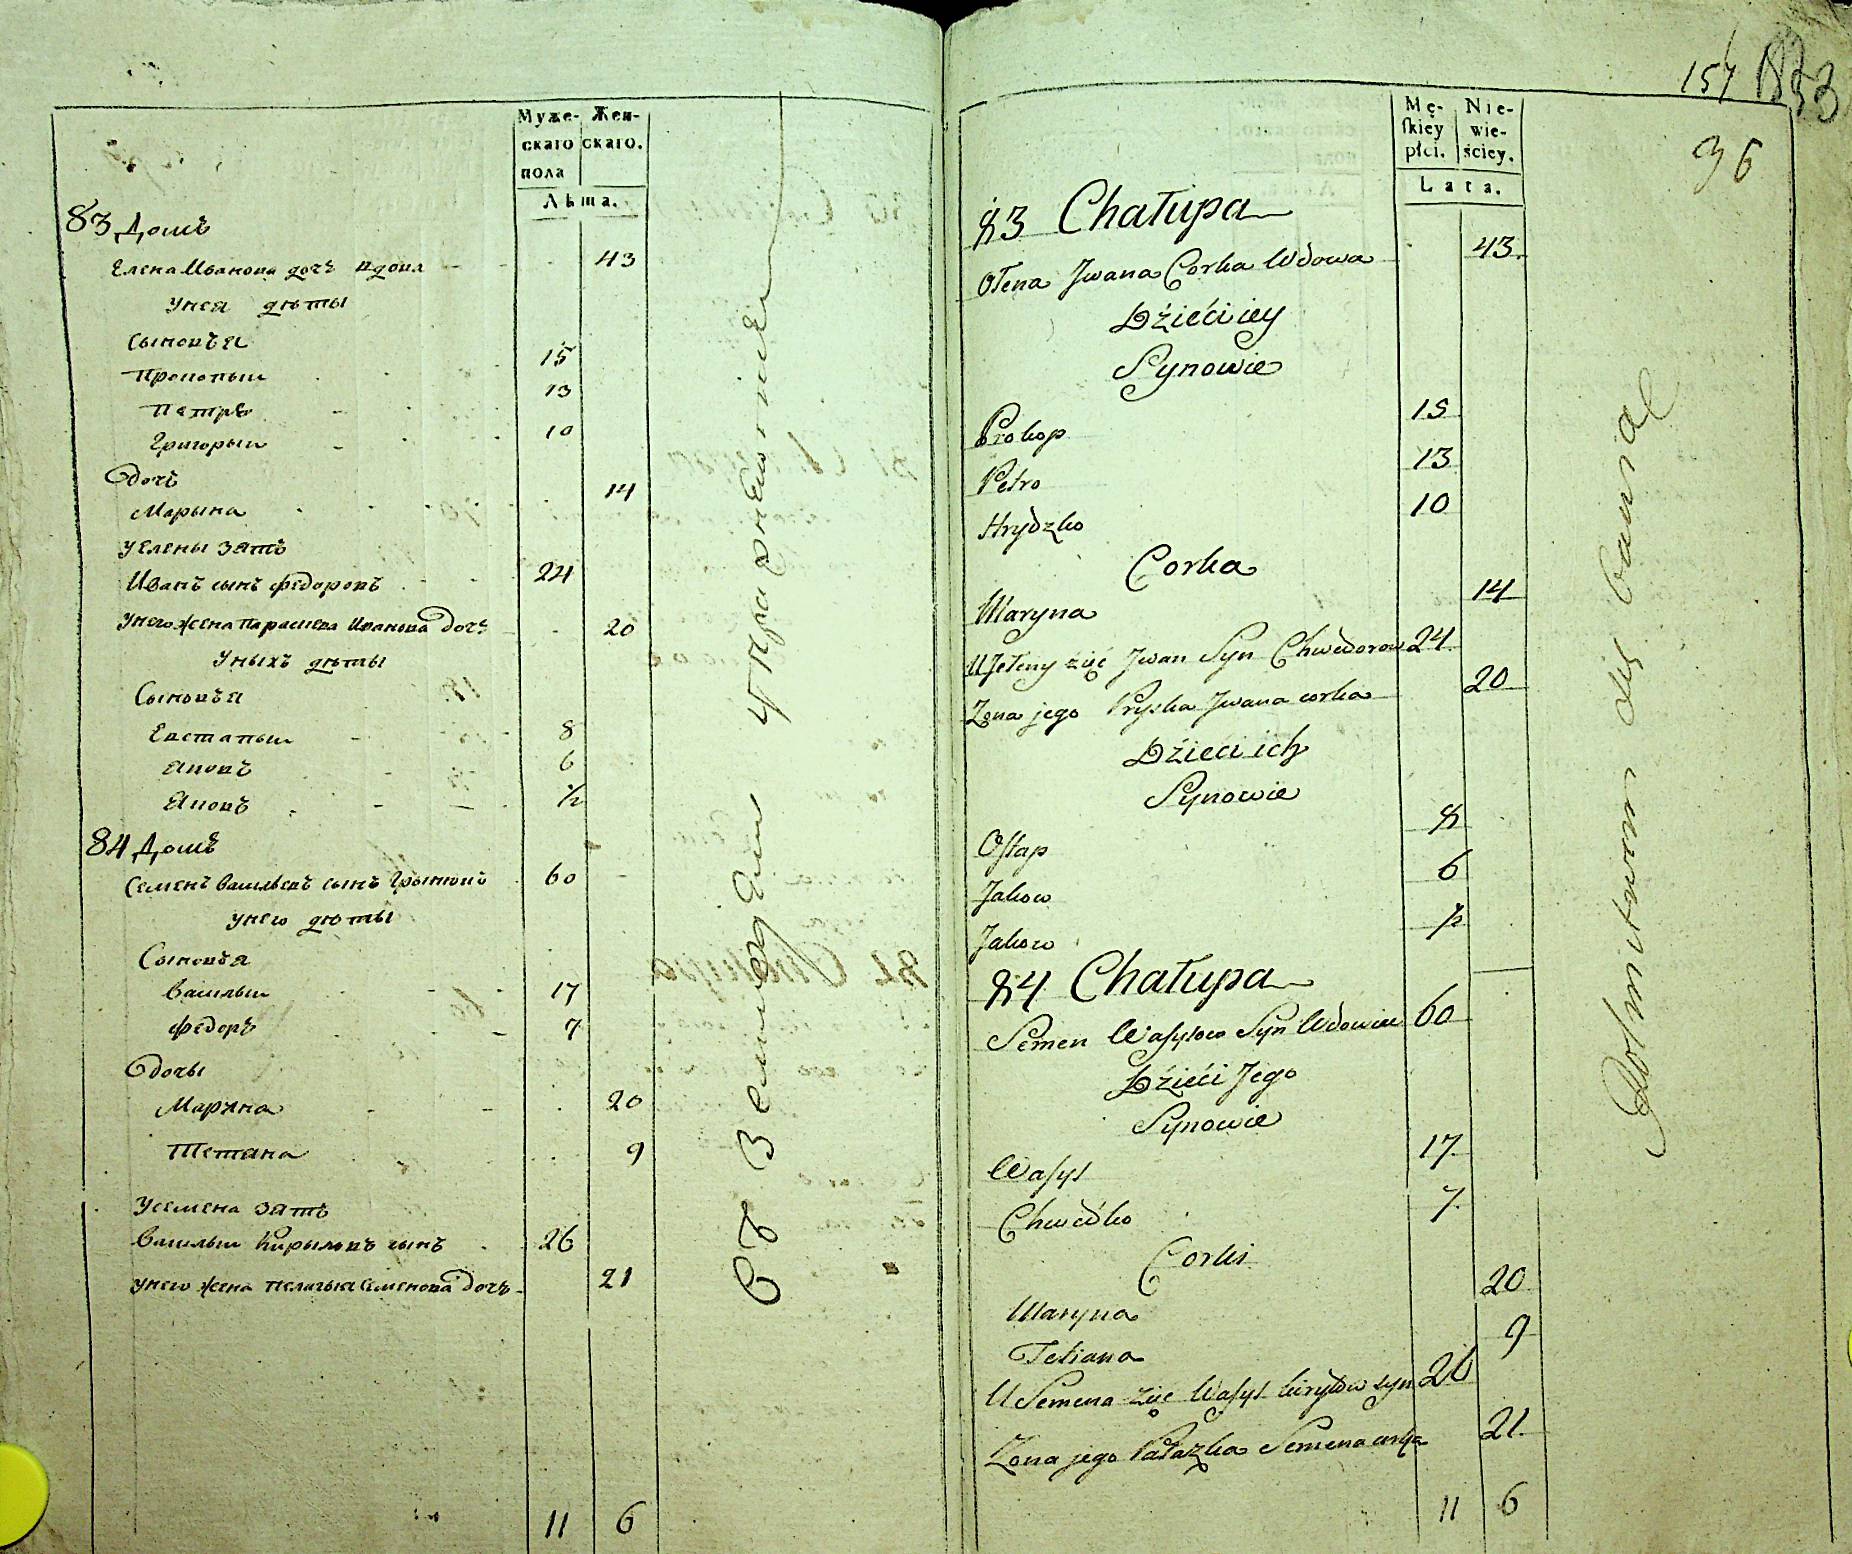 Муже-
скаго
пола
Жен-
скаго.
Лѣта.
83 Домъ
Елена Иванова дочь вдова 43
Унея дѣты
Сыновъя
Прокопыи 15
Петръ 13
Григорыи 10
Дочь
Марына 14
У Елены зять
Иванъ сынъ Федоровъ 24
Унего жена Параскева Иванова дочь 20
Уныхъ дѣты
Сыновъя
Евстапыи 8
Яковъ 6
Яковъ ½
84 Домъ
Семенъ Васильевъ сынъ 60
Унего дѣты
Сыновъя
Василыи 17
Федоръ 7
Дочы
Марына 20
Тетяна 9
У Семена зять
Василыи Кирыловъ сынъ 26
Унего жена Пелагыя Семенова дочь 21
11 6
Съ Земледелия
157
36
Mę-
skiey
płci.
Nie-
wie-
ściey.
Lata.
83 Chałupa
Ołena Jwana Corka Wdowa 43
Dźieci iey
Synowie
Prokop 15
Petro 13
Hrydzko 10
Corka
Maryna 14
U Jełeny zięć Jwan Syn Chwedorow 24
Zona jego Pryska Jwana corka 20
Dźieci ich
Synowie
Ostap 8
Jakow 6
Jakow ½
84 Chałupa
Semen Wasylow Syn Wdowiec 60
Dźieci Jego
Synowie
Wasyl 17
Chwedko 7
Corki
Maryna 20
Tetiana 9
U Semena zięć Wasyl Kiryłow syn 26
Zona jego Pałazka Semena corka 21
11 6
Rolnictwem się bawiąc